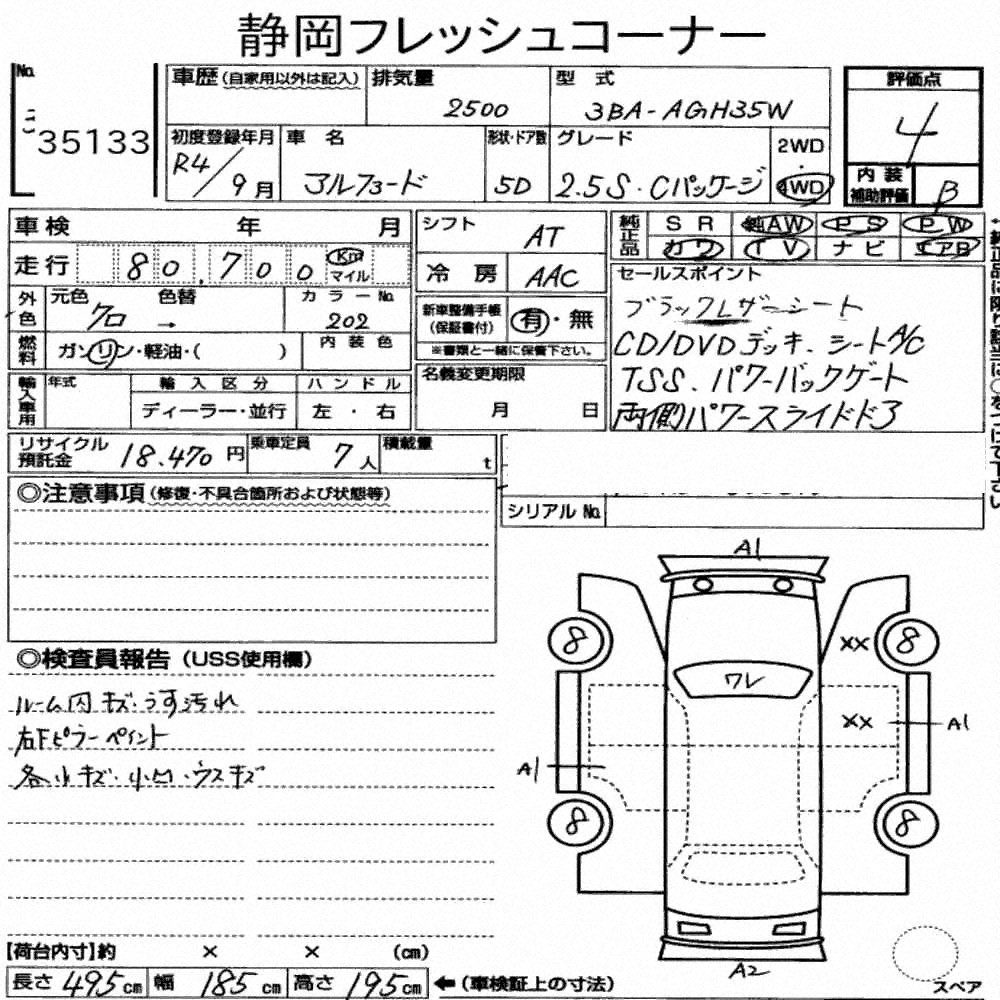 静岡フレッシュコーナー
No.
35133
車歴(自家用以外は記入)
排気量
2500
型式
3BA-AGH35W
評価点
4
初度登録年月
R4/9月
車名
アルファード
形状・ドア数
5D
グレード
2.5S・Cパッケージ
2WD
・
4WD
内装
補助評価
B
車検 年 月
シフト
AT
純正品
SR 純AW PS PW
カワ TV ナビ エアB
走行
80,700
Km
マイル
冷房
AAC
セールスポイント
ブラックレザーシート
CD/DVDデッキ、シートA/C
TSS、パワーバックゲート
両側パワースライドドア
外色
元色 色替
クロ →
カラーNo.
202
新車整備手帳
(保証書付)
有・無
※書類と一緒に保管下さい。
燃料
ガソリン・軽油・( )
内装色
名義変更期限
月 日
輸入車用
年式
輸入区分
ハンドル
ディーラー・並行
左・右
リサイクル
預託金
18.470円
乗車定員
7人
積載量
t
◎注意事項(修復・不具合箇所および状態等)
シリアルNo.
◎検査員報告(USS使用欄)
ルーム内キズ・うす汚れ
右下ピラーペイント
各小キズ・小凹・ウスキズ
A1
8
XX
8
ワレ
XX
A1
A1
8
8
A2
スペア
【荷台内寸】約 × × (cm)
長さ495cm
幅185cm
高さ195cm
←(車検証上の寸法)